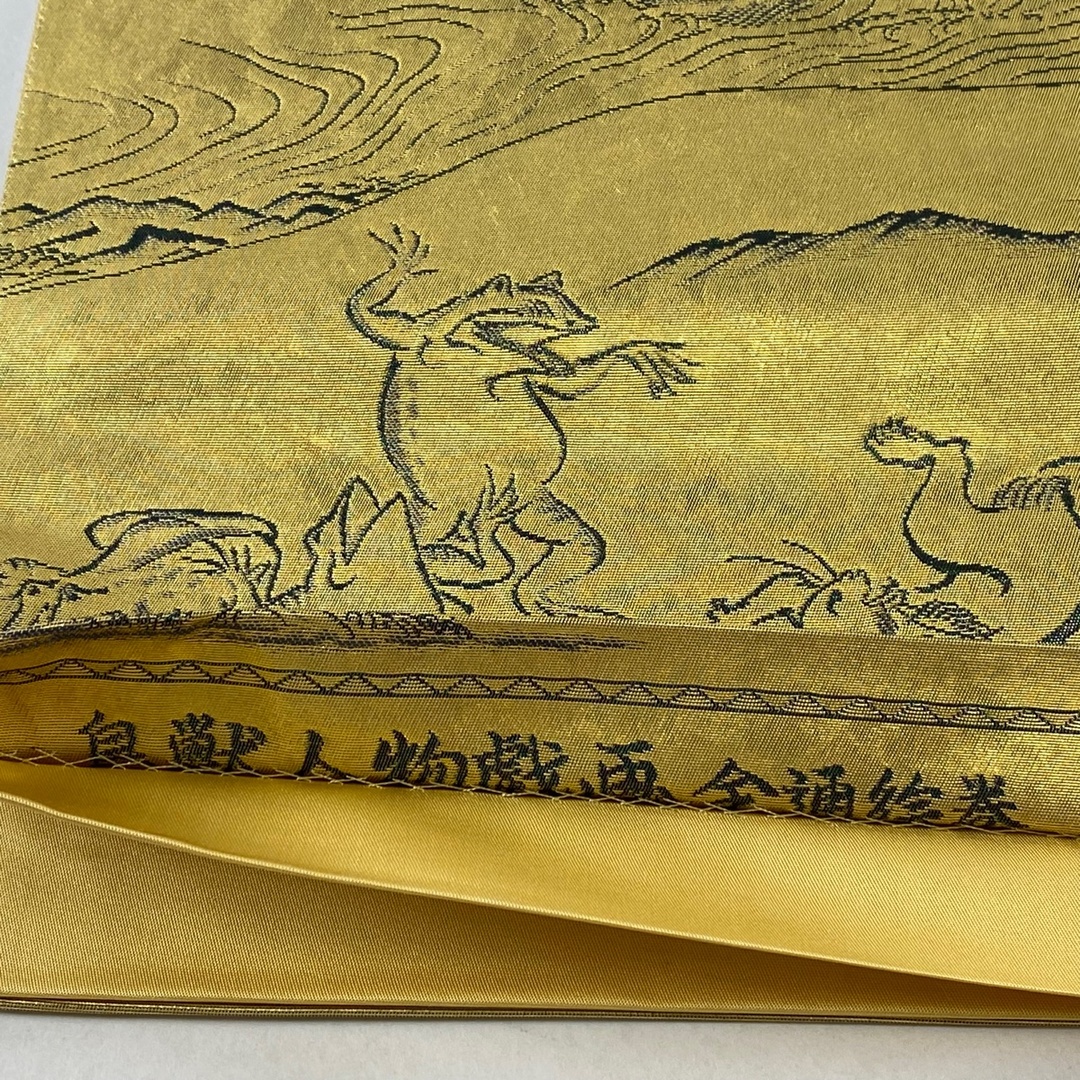 鳥獣人物戯画全通絵巻